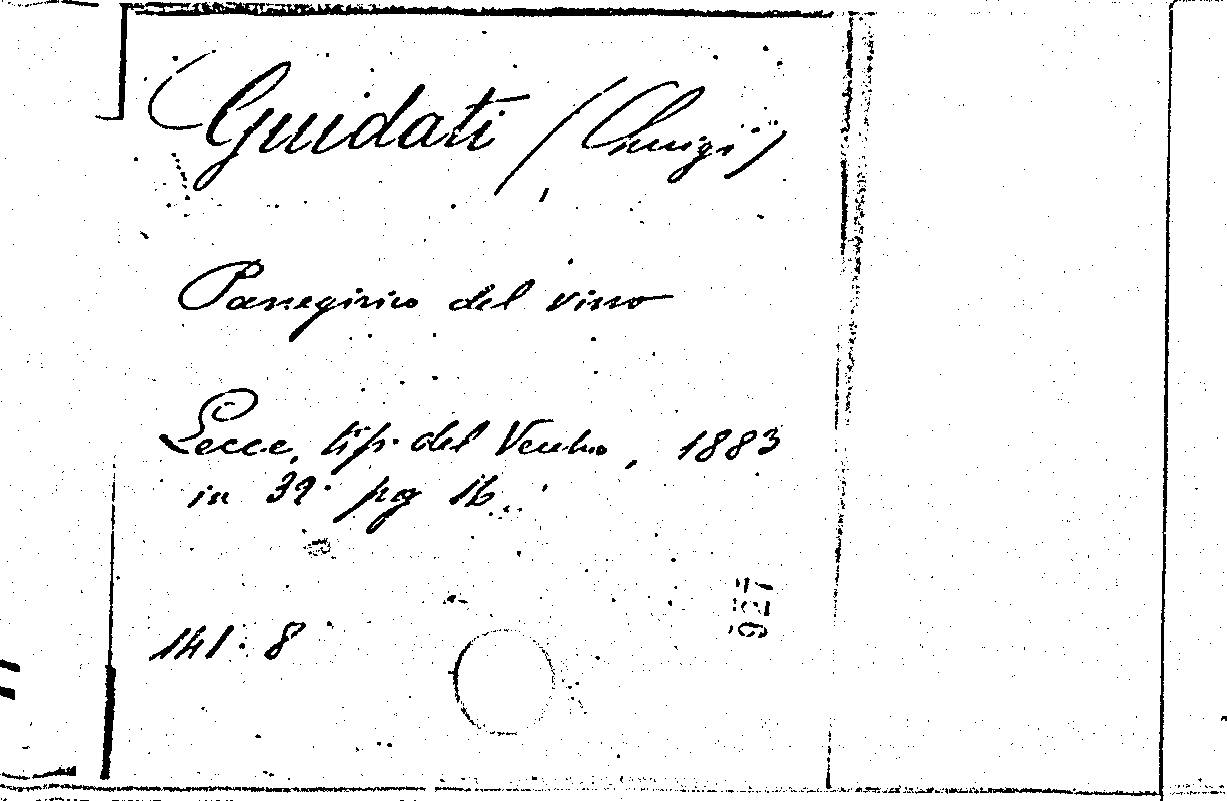 Guidati (Luigi)
Panegirico del vino
Lecce, tip. del Vecchio, 1883
in 32° pg 16.
141 · 8
927